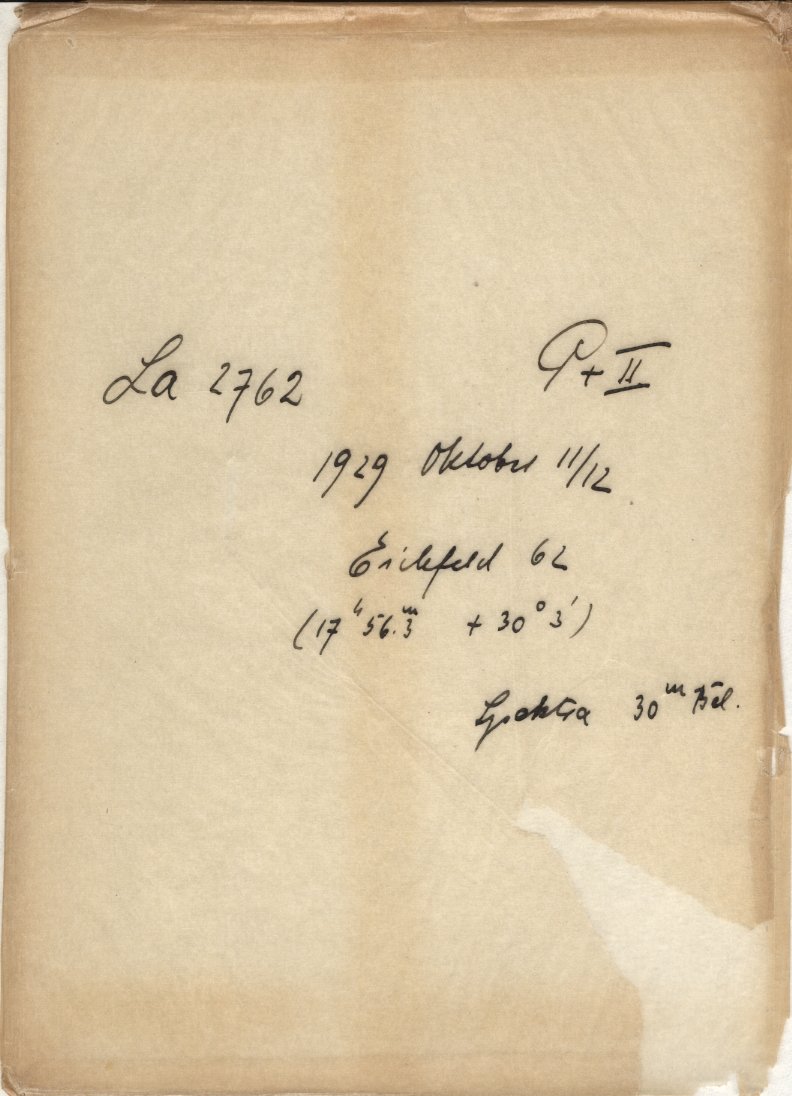 La 2762 P + II
1929 Oktober 11/12
Eichfeld 62
(17ʰ 56.ᵐ3 + 30° 3')
Spektra 30ᵐ Bel.